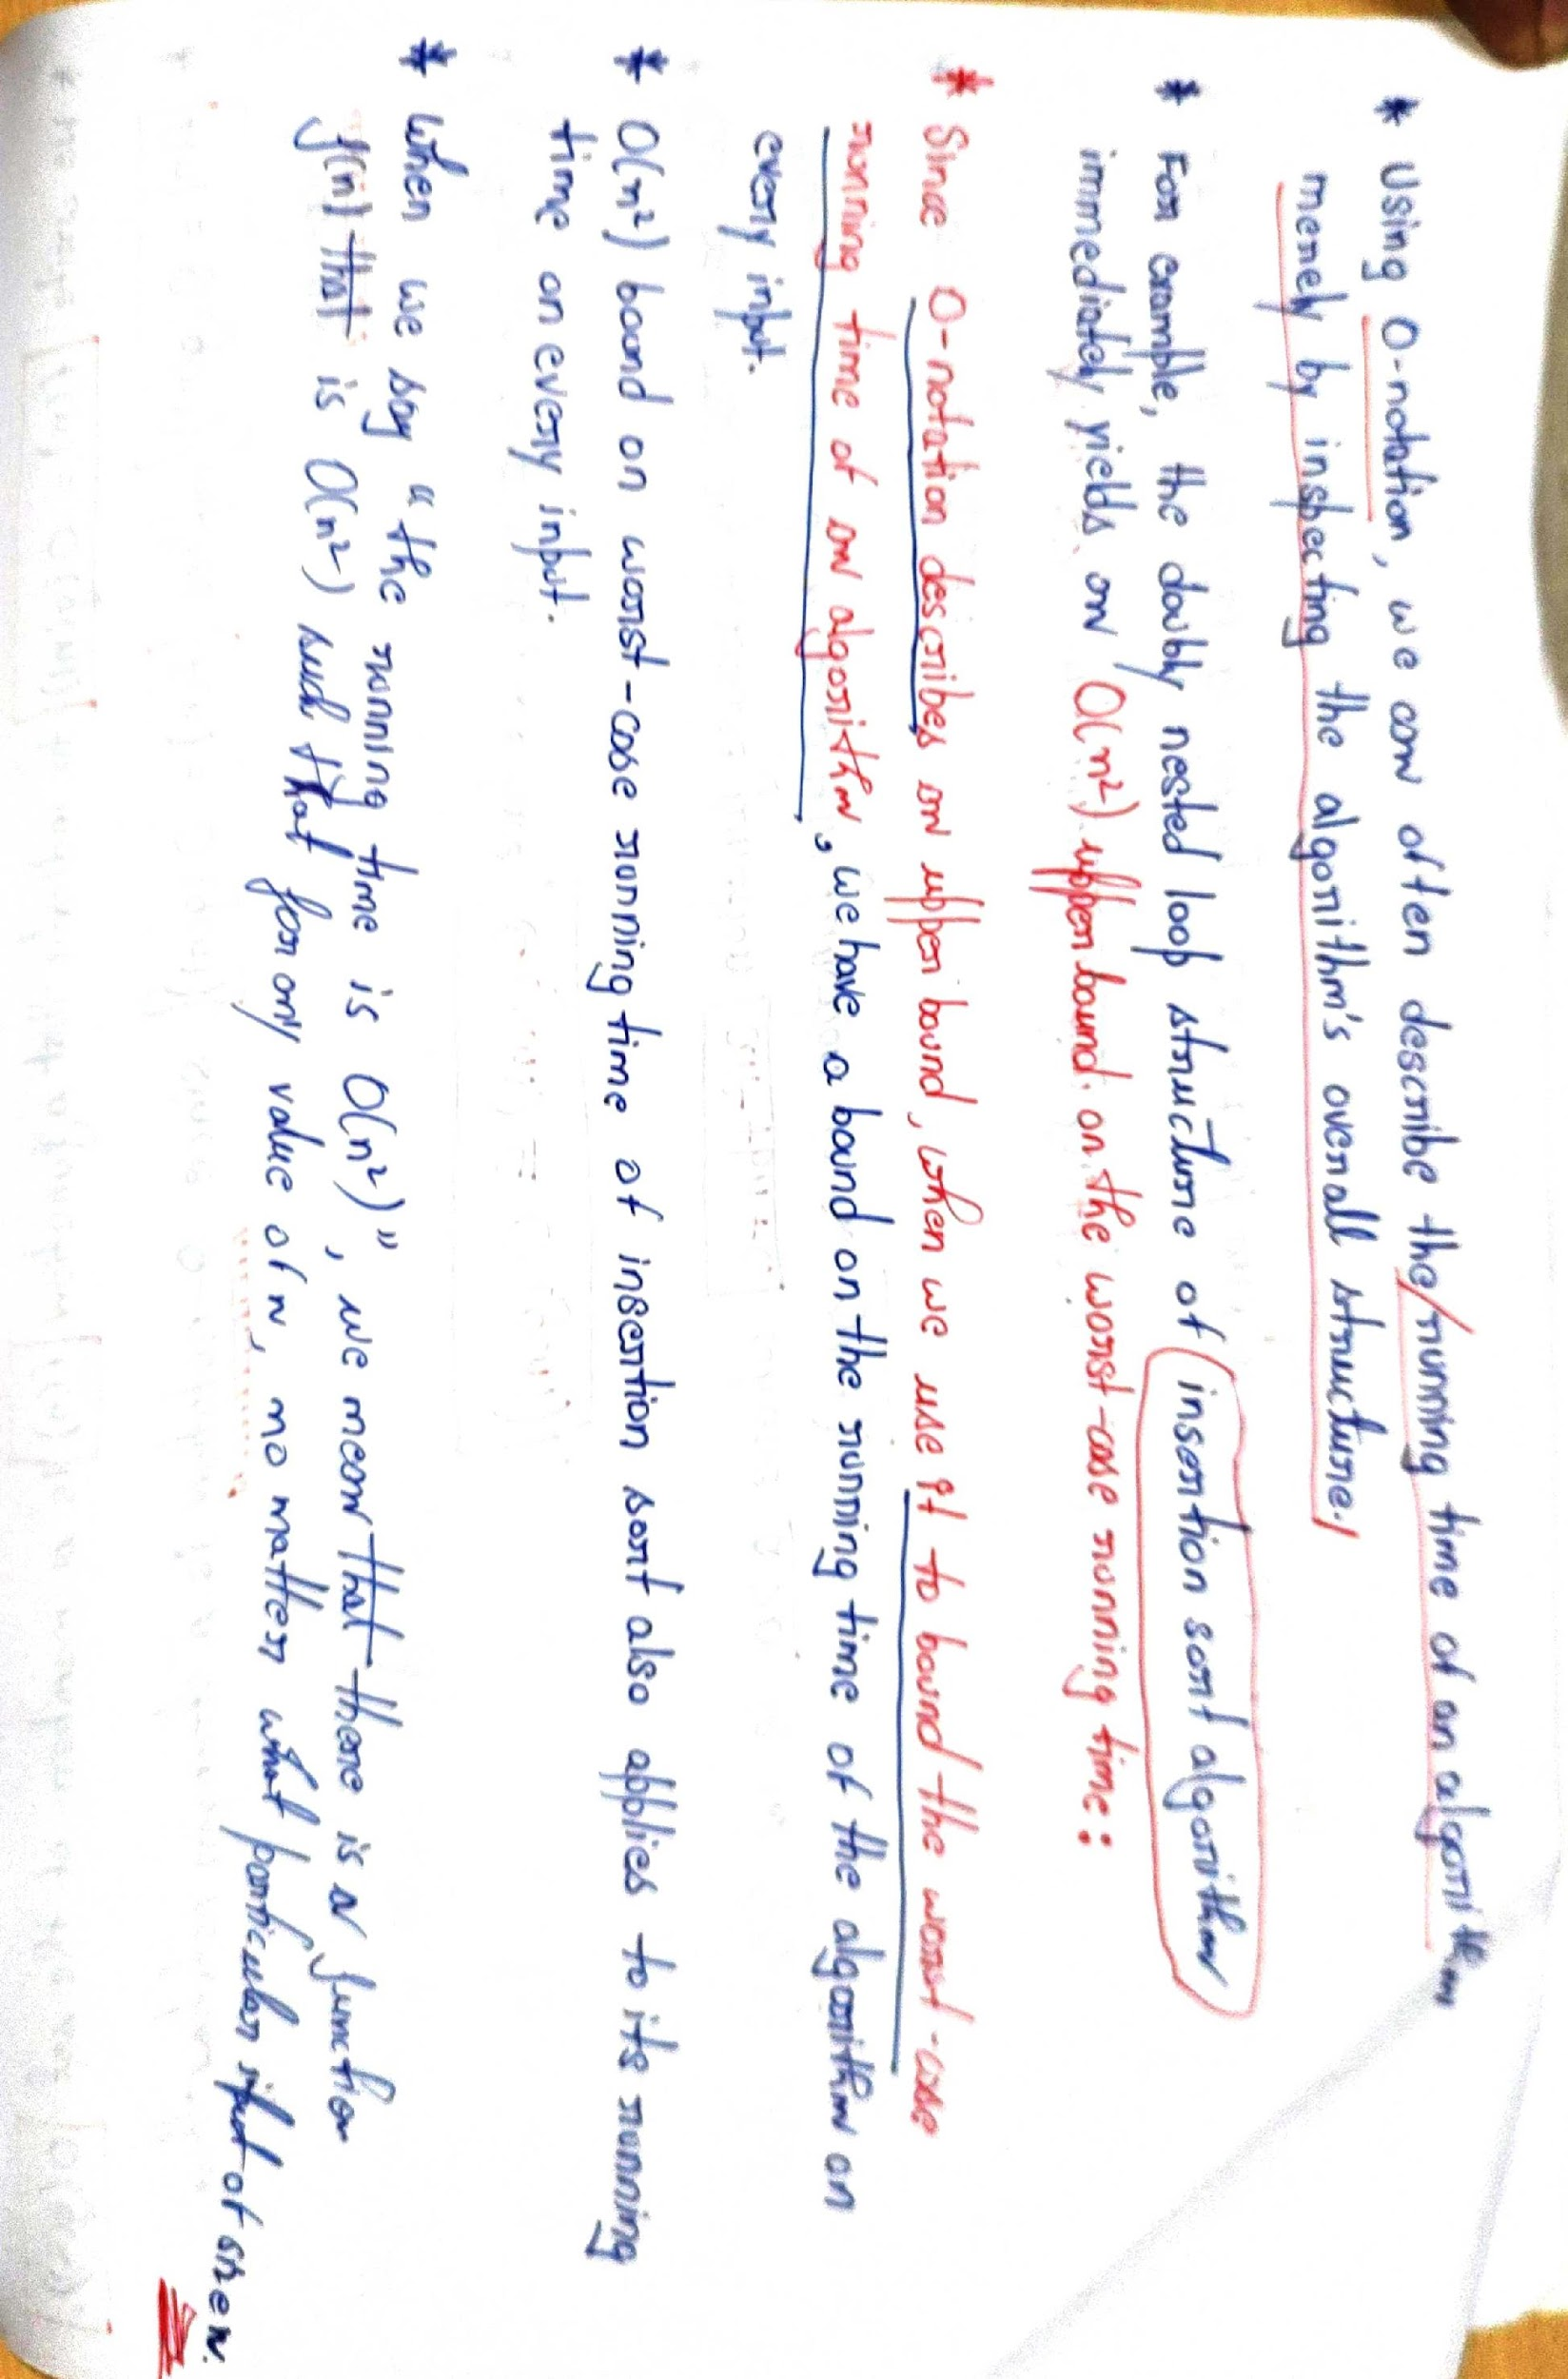 * Using O-notation, we can often describe the/running time of an algorithm
merely by inspecting the algorithm's overall structure./
* For example, the doubly nested loop structure of insertion sort algorithm
immediately yields an O(n²) upper bound on the worst-case running time:
* Since O-notation describes an upper bound, when we use it to bound the worst-case
running time of an algorithm, we have a bound on the running time of the algorithm on
every input.
* O(n²) bound on worst-case running time of insertion sort also applies to its running
time on every input.
* When we say "the running time is O(n²)", we mean that there is a function
f(n) that is O(n²) such that for any value of n, no matter what particular input of size n.